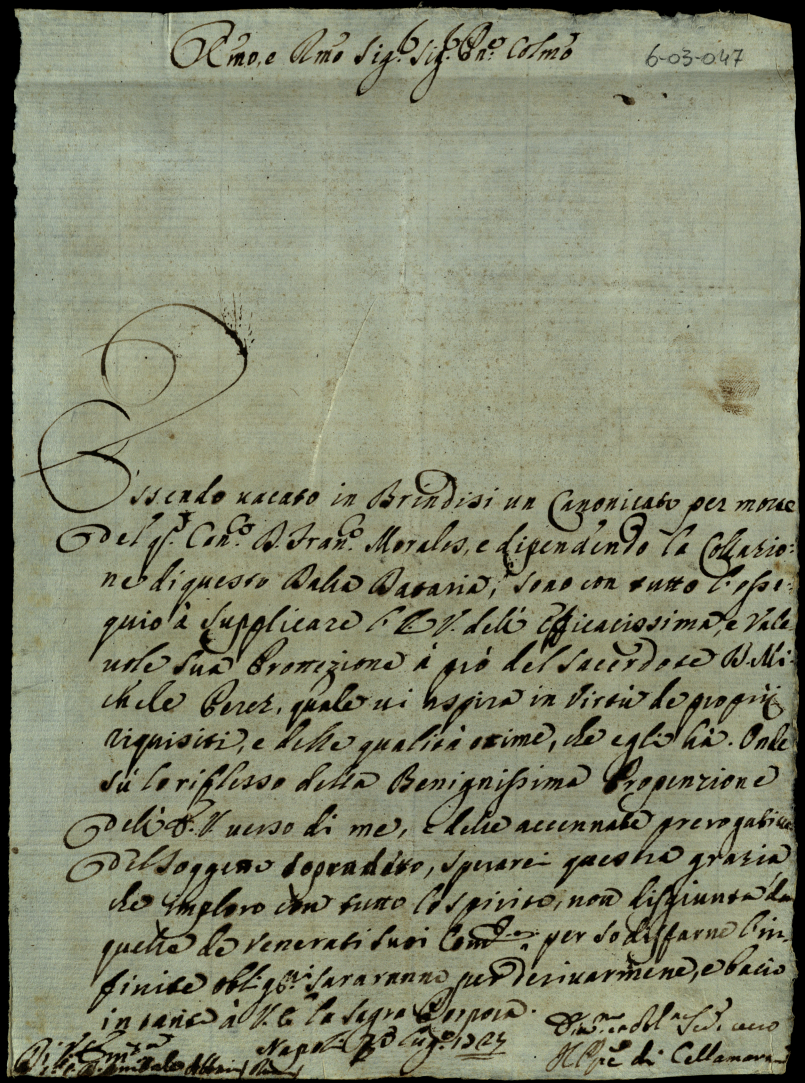 Emo, e Rmo Sig.r Sig.r Pne Colmo
6-03-047
Essendo vacato in Brindisi un Canonicato per morte
del q.m Can.co D. Fran.co Morales, e dipendendo la Collazio:
ne di questo Dalla Dataria, sono con tutto l'osse:
quio à supplicare l'E V. dell' efficacissima, e vale
vole sua Protezione à prò del sacerdote D. Mi:
chele Perez, quale vi aspira in virtù de proprij
riquisiti, e delle qualità ottime, che egli hà. Onde
sù lo riflesso della Benignissima Propenzione
dell' E. V verso di me, e delle accennate prerogative
del soggetto sopradetto, sperarei questa grazia
che imploro con tutto lo spirito, non disgiunta da
quelle de venerati suoi Com.di per sodisfarne l'in:
finite obligni saranno per derivarmene, e bacio
in tanto à V. E. la sagra Porpora.
Napoli Lug.o 1727
Di V. Em.za
Il Pñe di Cellamare